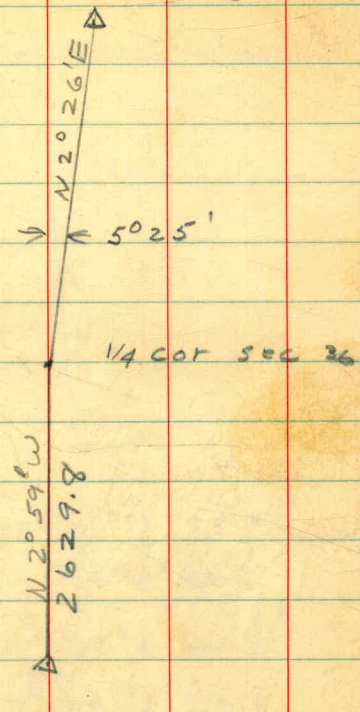 N 2° 26' E
5° 25'
1/4 cor sec 36
N 2° 59' W
2629.8